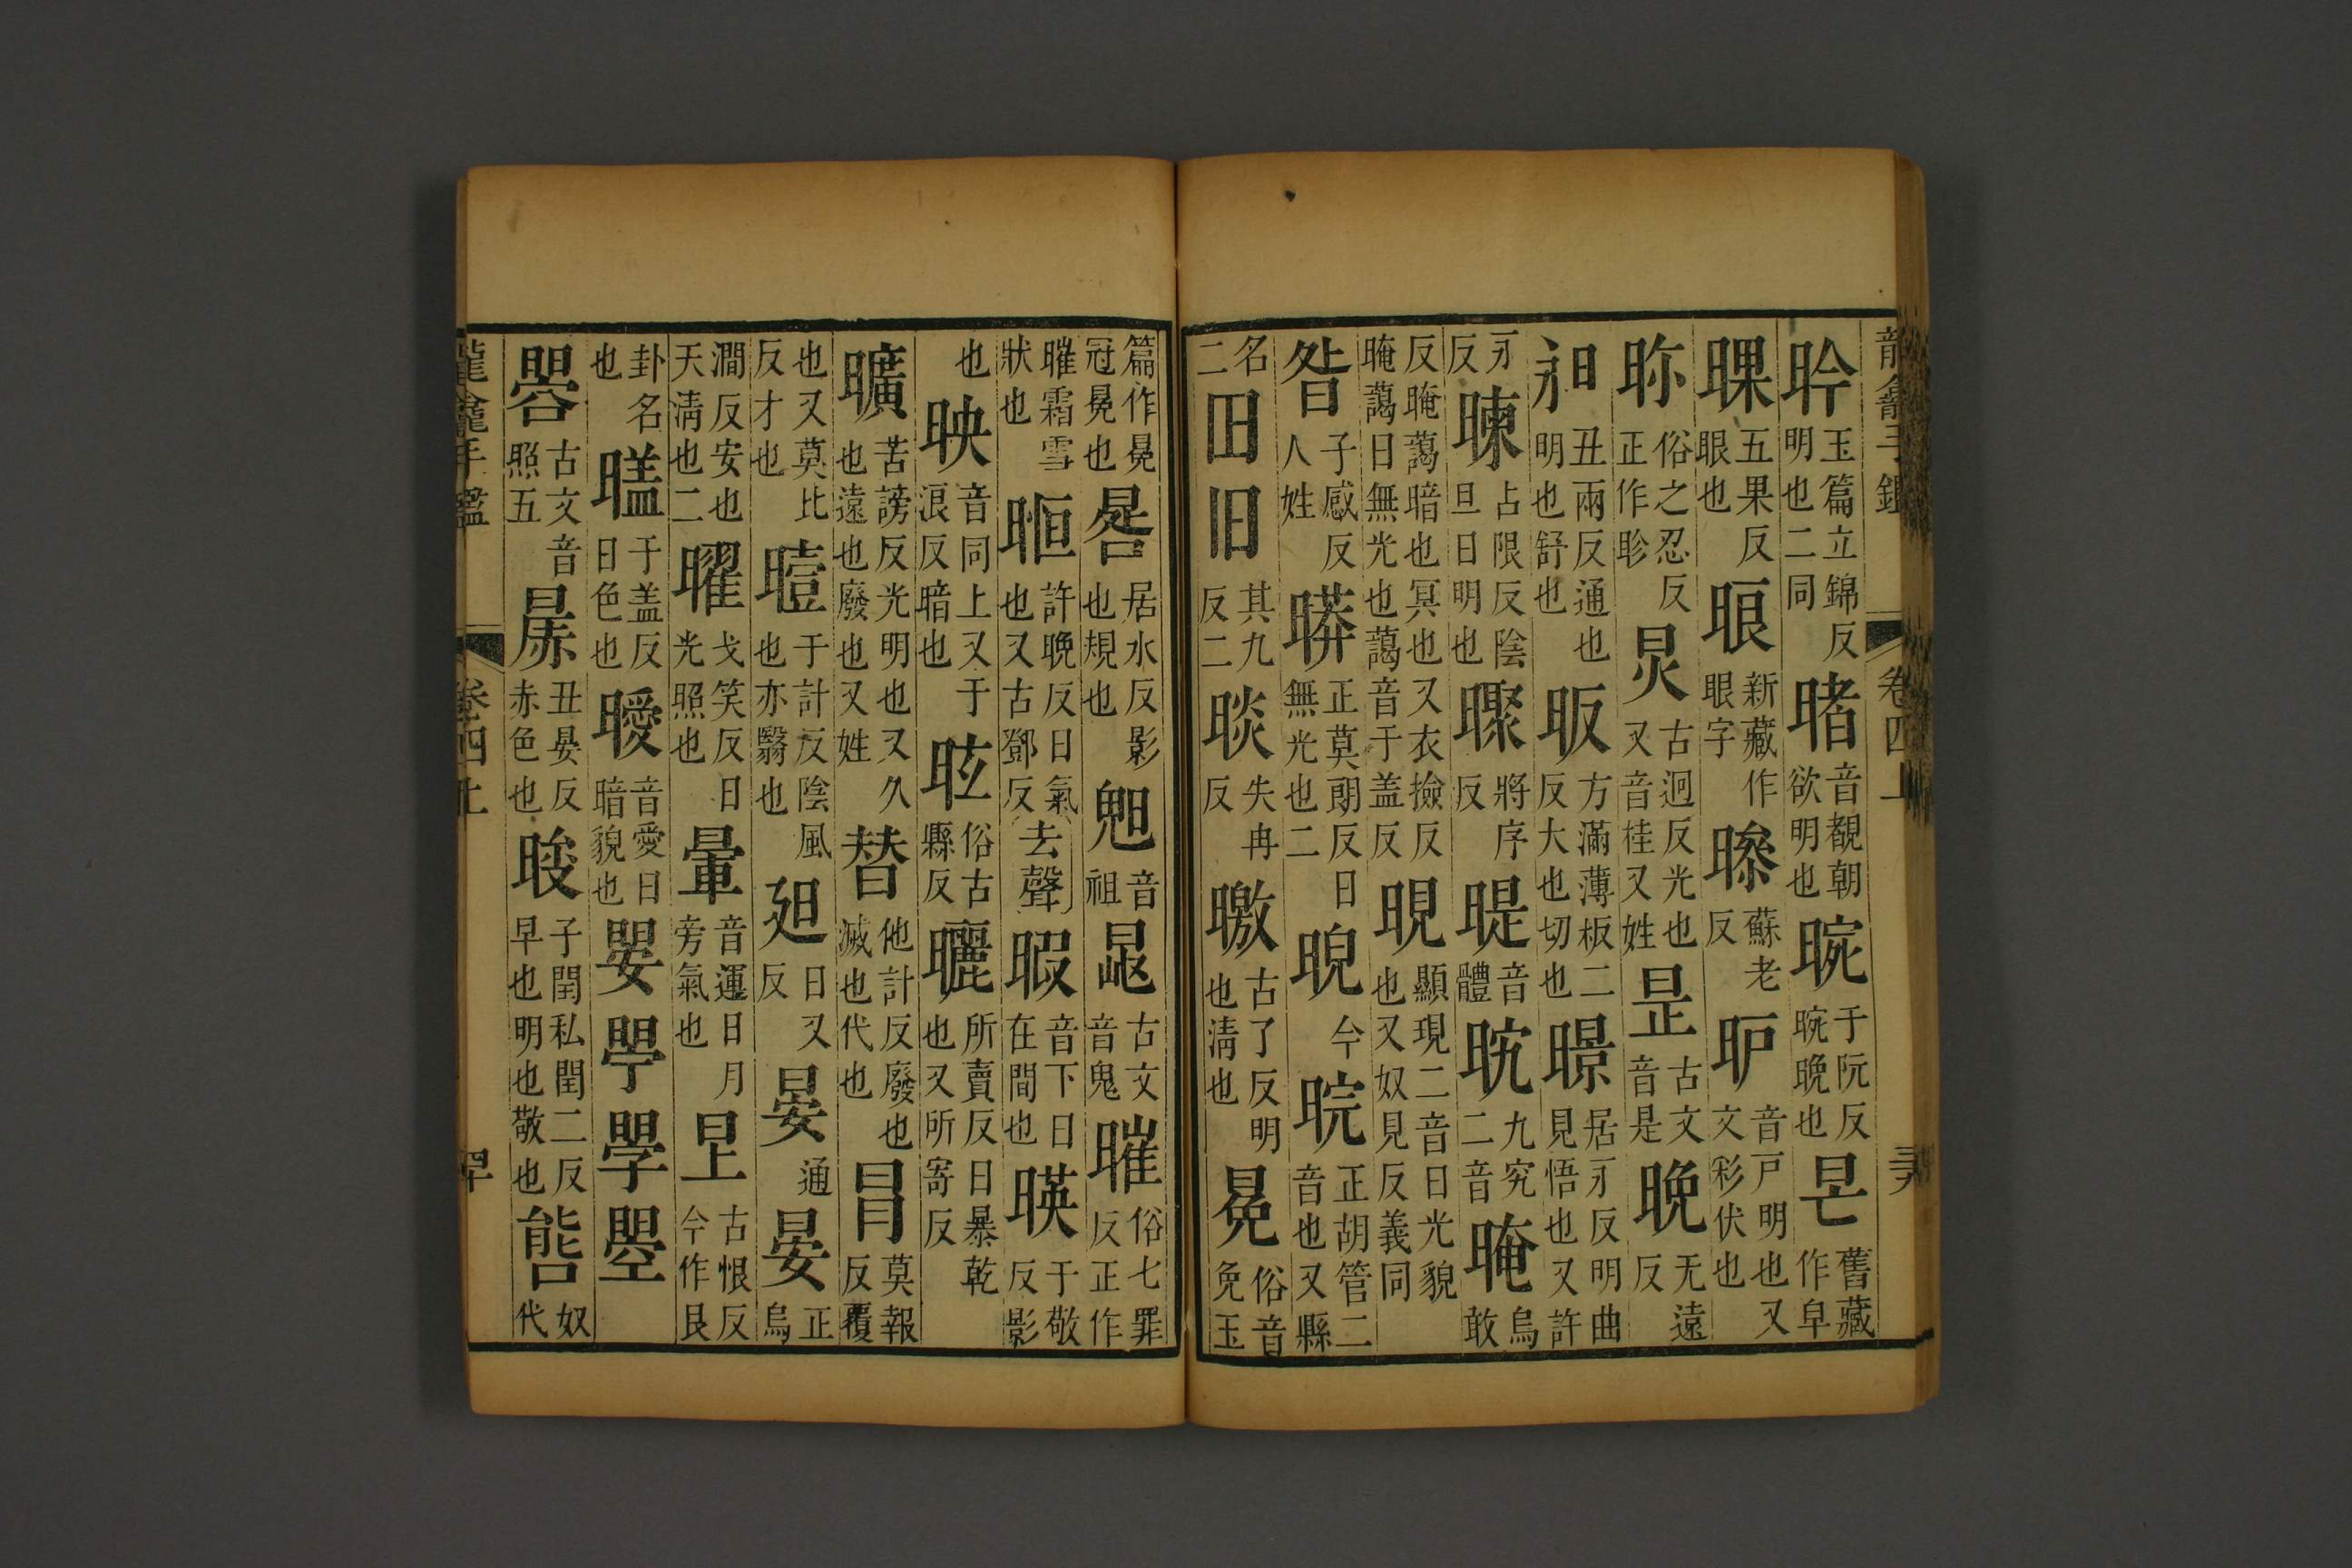 昑玉篇立錦反明也二同睹音覩朝欲明也晼于阮反晼晚也𣅔舊藏作皁
㬁五果反眼也䀶新藏作眼字㬠蘇老反昈音戸明也又文彩伏也
昣俗之忍反正作昣炅古迥反光也又音桂又姓昰古文音是晩无遠反
昶丑兩反通也明也舒也昄方滿薄板二反大也切也暻居永反明曲見悟也又許
永反暕占限反陰旦日明也㬗將序反㫼音體晥九究二音晻烏敢
反晻藹暗也冥也又衣撿反晻藹日無光也藹音于盖反晛顯現二音日光貌也又奴見反義同
昝子感反人姓㬒正莫朗反日無光也二晲今晥正胡管二音也又縣
名二𣅊旧其九反二晱失冉反曒古了反明也淸也冕俗音免玉
篇作冕冠冕也晷居水反影也規也䰟音祖㫿古文音鬼㵽俗七罪反正作
㵽霜雪狀也暅許晚反日氣也又古鄧反〔去聲〕暇音下日在間也暎于敬反影
也映音同上又于浪反暗也昡俗古縣反曬所賣反日暴乾也又所寄反
曠苦謗反光明也又久也遠也廢也又姓替他計反廢也滅也代也冒莫報反覆
也又莫比反才也曀于計反陰風也亦翳也𣆀日又反晏通晏正烏
澗反安也天淸也二曜戈笑反日光照也暈音運日月旁氣也𣅽古恨反今作艮
卦名也㬟于盖反日色也曖音愛日暗貌也
古文音照五丑晏反赤色也晙子閏私閏二反早也明也敬也奴代
龍龕手鑑
卷四上